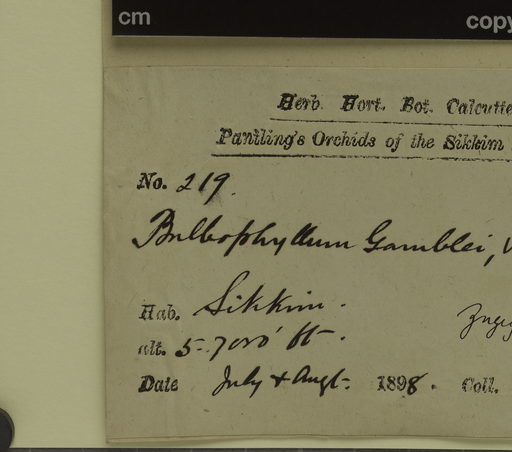 cm copy
Herb. Hort. Bot. Calcutte
Pantling's Orchids of the Sikkim
No. 219.
Bulbophyllum Gamblei,
Hab. Sikkim.
alt. 5-7000' ft.
Date July & Augt. 1898. Coll.